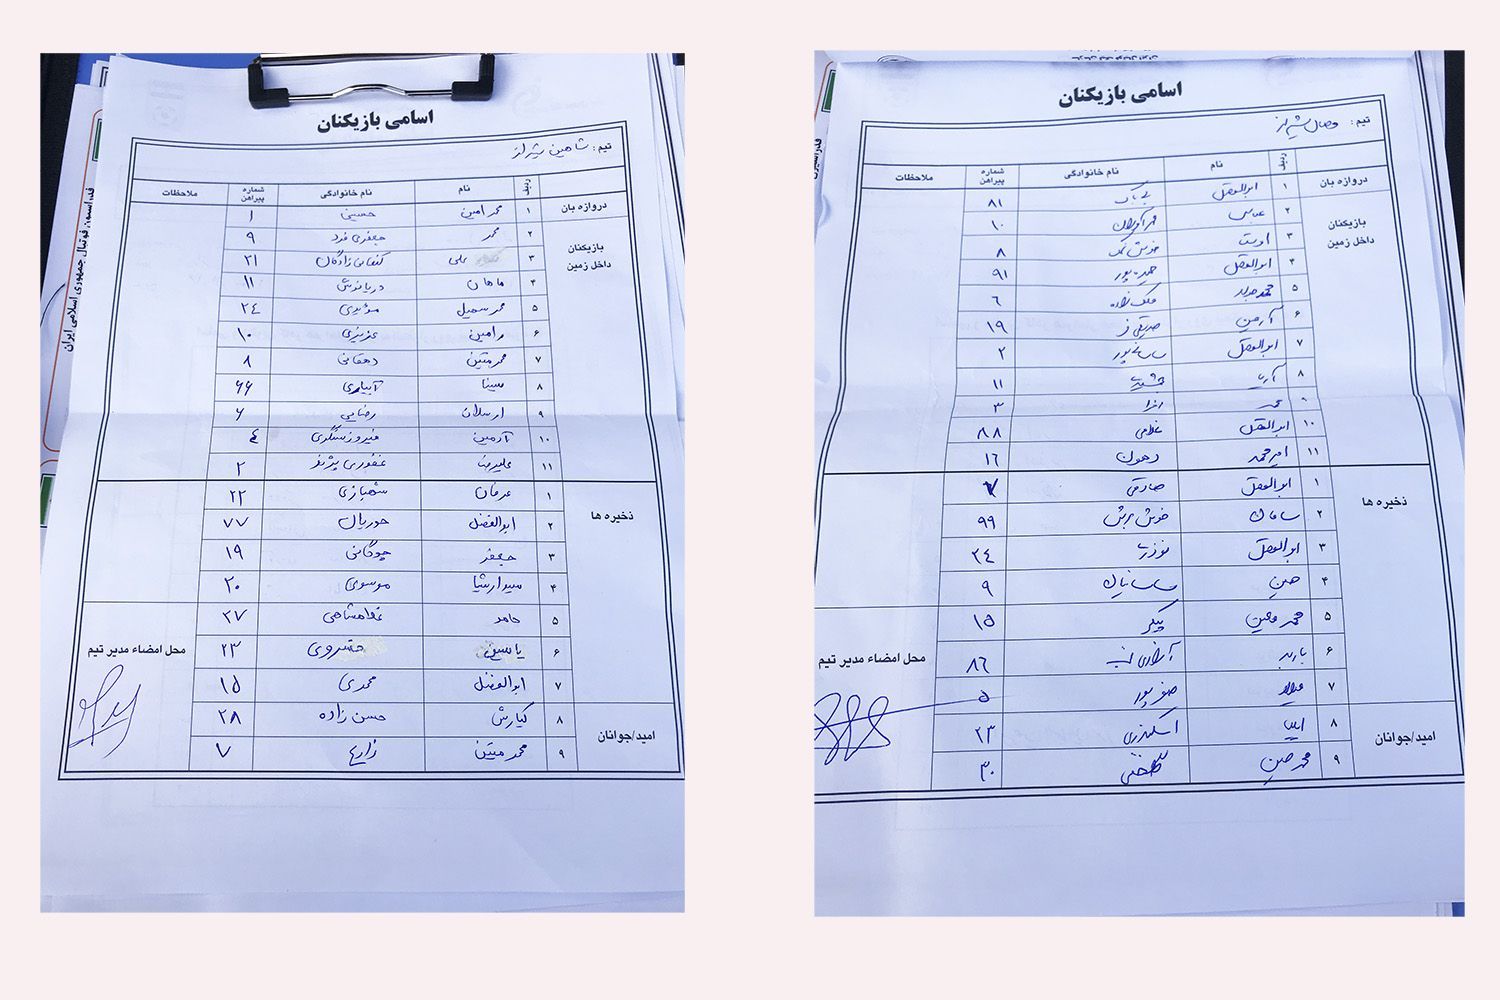 اسامی بازیکنان
تیم : شاهین شیراز
ردیف نام نام خانوادگی شماره پیراهن ملاحظات
دروازه بان ۱ محمد امین حسینی ۱
بازیکنان داخل زمین ۲ محمد جعفری فرد ۹
۳ علی کنعانی زادگان ۲۱
۴ ماهان دریانوش ۱۱
۵ محمد سهیل ۲۴
۶ رامین عزیزی ۱۰
۷ محمد متین دهقانی ۸
۸ سینا آبیاری ۶۶
۹ ارسلان رضایی ۶
۱۰ آرمین فیروز سنگری ۴
۱۱ علیرضا غفوری ۲
ذخیره ها ۱ عرفان شهبازی ۲۲
۲ ابوالفضل حوریان ۷۷
۳ جعفر چوگانی ۱۹
۴ موسوی ۲۰
۵ حامد غلامشاهی ۲۷
محل امضاء مدیر تیم ۶ یاسین خسروی ۲۳
۷ ابوالفضل محمدی ۱۵
امید/جوانان ۸ کیارش حسن زاده ۲۸
۹ محمد متین زارع ۷
فدراسیون فوتبال جمهوری اسلامی ایران
اسامی بازیکنان
تیم : وصال شیراز
ردیف نام نام خانوادگی شماره پیراهن ملاحظات
دروازه بان ۱ ابوالفضل بی باک ۸۱
بازیکنان داخل زمین ۲ عباس ۱۰
۳ ۸
۴ ابوالفضل حیدرپور ۹۱
۵ ملک زاده ۶
۶ آرمین صدیقی فر ۱۹
۷ ابوالفضل ۲
۸ آریا جمشیدی ۱۱
۹ محمد ۳
۱۰ ابوالفضل غلامی ۸۸
۱۱ امیرمحمد دهون ۱۶
ذخیره ها ۱ ابوالفضل صادقی ۷
۲ سامان خوش برش ۹۹
۳ ابوالفضل نوذری ۲۴
۴ حسین ساسانیان ۹
۵ محمد معین پیکر ۱۵
محل امضاء مدیر تیم ۶ باربد ۸۶
۷ میلاد صفرپور ۵
امید/جوانان ۸ ایلیا اسکندری ۲۳
۹ محمد حسین ۳۰